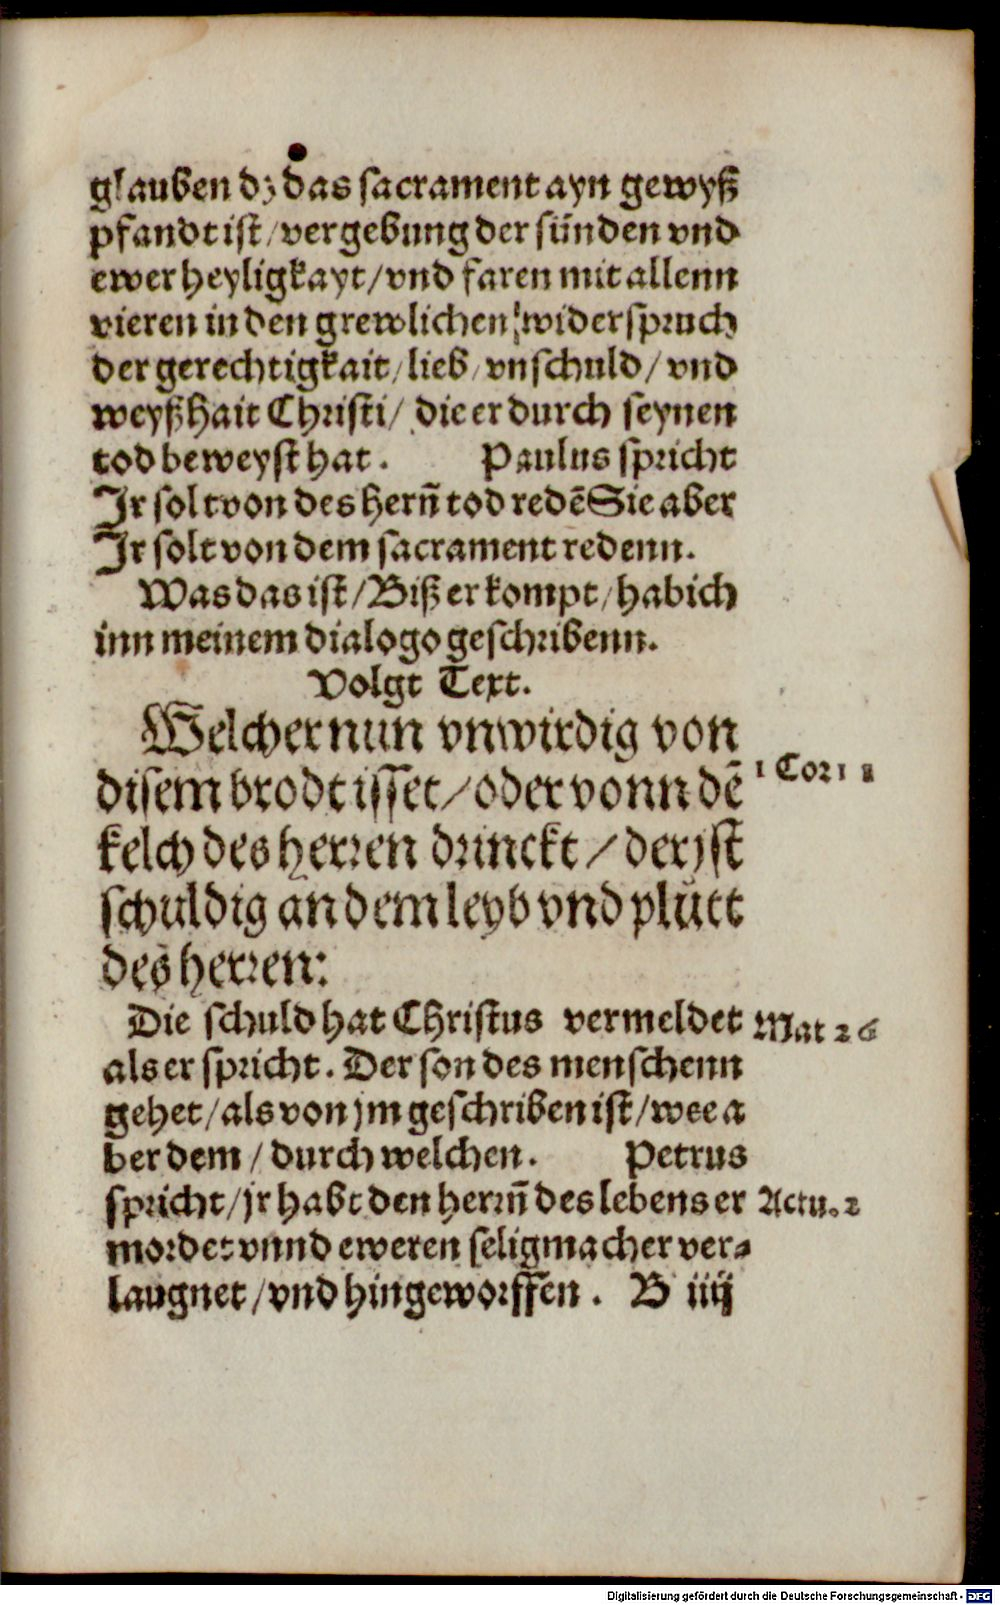 glauben dz das sacrament ayn gewyß
pfandt ist / vergebung der sünden vnd
ewer heyligkayt / vnd faren mit allenn
vieren in den grewlichen widerspruch
der gerechtigkait / lieb / vnschuld / vnd
weyßhait Christi / die er durch seynen
tod beweyst hat . Paulus spricht
Jr solt von des hern̄ tod redē Sie aber
Jr solt von dem sacrament redenn.
Was das ist / Biß er kompt / hab ich
inn meinem dialogo geschribenn.
Volgt Text.
Welcher nun vnwirdig von
disem brodt isset / oder vonn dē
1 Cor 1 1
kelch des herren drinckt / der jst
schuldig an dem leyb vnd plůtt
des herren:
Die schuld hat Christus vermeldet
Mat 26
als er spricht . Der son des menschenn
gehet / als von jm geschriben ist / wee a
ber dem / durch welchen . Petrus
spricht / jr habt den herrn̄ des lebens er
Actu. 2
mordet vnnd eweren seligmacher ver⸗
laugnet / vnd hingeworffen . B iiij
Digitalisierung gefördert durch die Deutsche Forschungsgemeinschaft - DFG